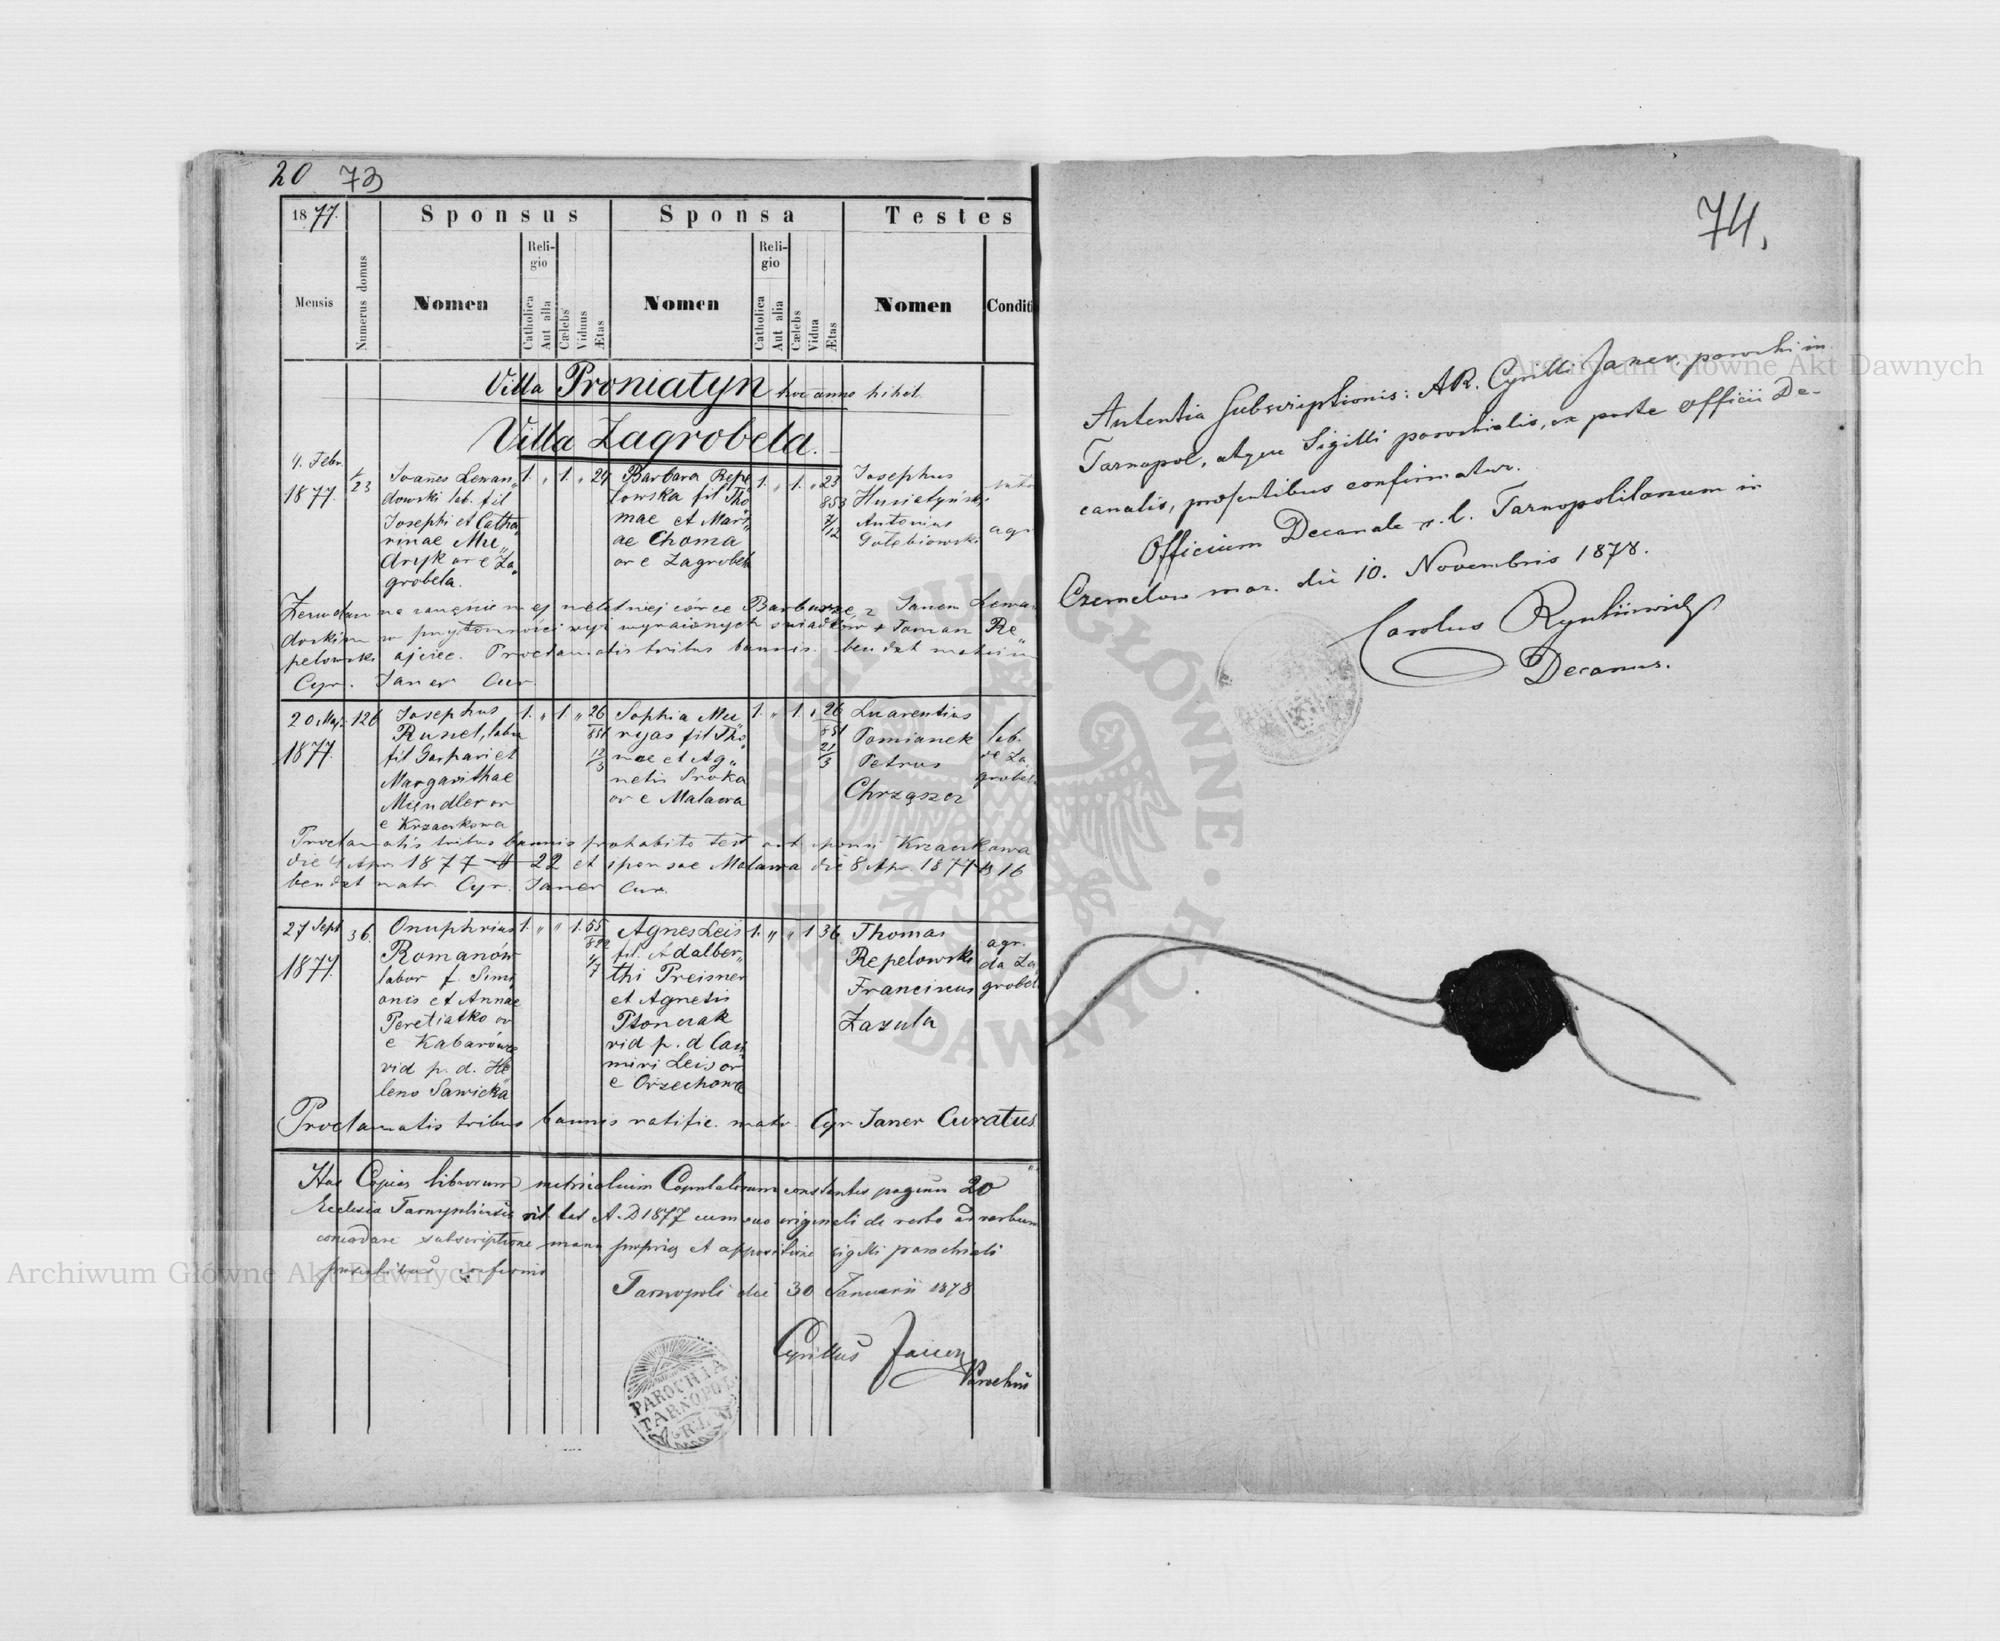 20 73
1877.
Sponsus Sponsa Testes
Mensis
Numerus domus
Nomen
Religio
Catholica
Aut alia
Cælebs
Viduus
Ætas
Nomen
Religio
Catholica
Aut alia
Cælebs
Vidua
Ætas
Nomen
Conditi
Villa Proniatyn hoc anno nihil
Villa Zagrobela.
4. Febr.
1877.
23
Joañes Lewan„
dowski lab. fil
Josephi et Catha„
rinae Mu„
dryk or e Za„
grobela.
1. „ 1. „ 24
Barbara Repe„
lowska fil Tho„
mae et Mari„
ae Choma
or e Zagrobela
1. „ 1. „ 23
853
7/12
Josephus
Husiatyński
Antonius
Gołębiowski
agr
Zezwalam na zamęście mej nieletniej córce Barbarze z Janem Lewan
dowskim w przytomności wyż wyrażonych świadków + Toman Re„
pelowski ojciec. Proclamatis tribus bannis. bendxt matrim
Cyr. Janer Cur.
20 Maj.
1877.
126
Josephus
Rusiel, labo
fil Gaspari et
Margarithae
Mündler or
e Krzaczkowa
1. „ 1. „ 26
851
12/3
Sophia Mu„
ryas fil Tho„
mae et Ag„
netis Sroka
or e Malawa
1. „ 1. „ 26
851
21/3
Luarentius
Pomianek
Petrus
Chrząszcz
lab.
de Za„
grobela
Proclamatis tribus bannis prohabito test
die 4 Apr. 1877 22 et sponsae Malawa die 8 Apr 1877 16
bendxt matr. Cyr. Janer Cur.
27 Sept
1877.
36.
Onuphrius
Romanów
labor f. Simi„
onis et Annae
Peretiatko or
e Kabarówce
vid p. d. He„
lena Sawicka
1. „ „ 1. 55
822
4/7
Agnes Leis
fil. Adalber„
thi Preisner
et Agnetis
Płonczak
vid p. d Casi„
miri Leis or
e Orzechowe
1. „ „ 1 36
Thomas
Repelowski
Franciscus
Zazula
agr.
da Za„
grobela
Proclamatis tribus bannis ratific. matr. Cyr Janer Curatus
Has Copias librorum metricalium Copulatorum constantes paginis 20
Ecclesia Tarnopoliensis rit. lat A. D 1877 cum suo originali de verbo ad verbum
concordare subscriptione manu propria et appositione sigilli parochiali
praesentibus confirmo
Tarnopoli die 30 Januarii 1878
Cyrillus Janer
Parochus
PAROCHIA
TARNOPOL
R.L.
74.
Autentia Subscriptionis: AR. Cyrilli Janer, parochi in
Tarnopol, atque Sigilli parochialis, ex parte Officii De-
canalis, præsentibus confirmatur.
Officium Decanale r. l. Tarnopolitanum in
Czernelów maz. die 10. Novembris 1878.
Carolus
Decanus.
Archiwum Główne Akt Dawnych
Archiwum Główne Akt Dawnych
ARCHIWUM GŁÓWNE AKT DAWNYCH